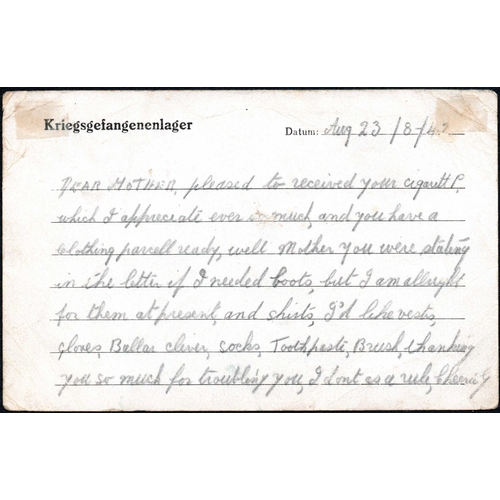 Kriegsgefangenenlager
Datum: Aug 23/8/42
DEAR MOTHER, pleased to received your cigarett P,
which I appreciate ever so much, and you have a
clothing parcell ready, well Mother you were stating
in the letter if I needed boots, but I am allright
for them at present, and shirts, I'd like vests,
gloves, Ballar cliver, socks, Toothpaste, Brush, thanking
you so much for troubling you, I dont as a rule,